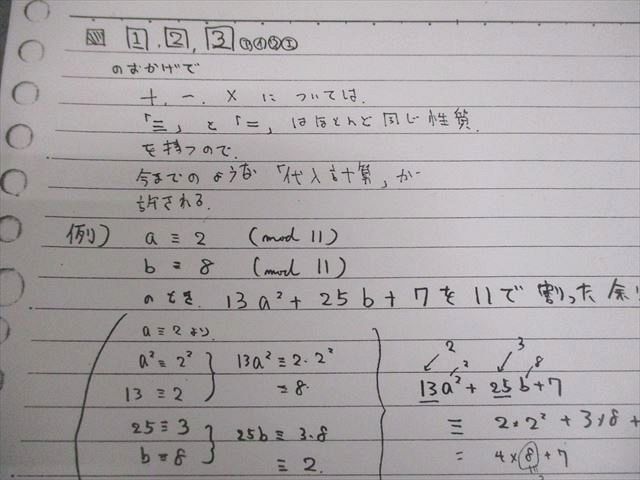 ▨ 1, 2, 3
のおかげで
+, -, × については.
「≡」と「=」はほとんど同じ性質.
を持つので.
今までのような「代入計算」が
許される.
例) a ≡ 2 (mod 11)
b ≡ 8 (mod 11)
のとき. 13a² + 25b + 7 を 11で割った余り
a ≡ 2 より.
a² ≡ 2²
13 ≡ 2
13a² ≡ 2・2²
= 8.
25 ≡ 3
b ≡ 8
25b ≡ 3・8
≡ 2.
2 3
2 8
13a² + 25b + 7
≡ 2×2² + 3×8 +
= 4×8 + 7